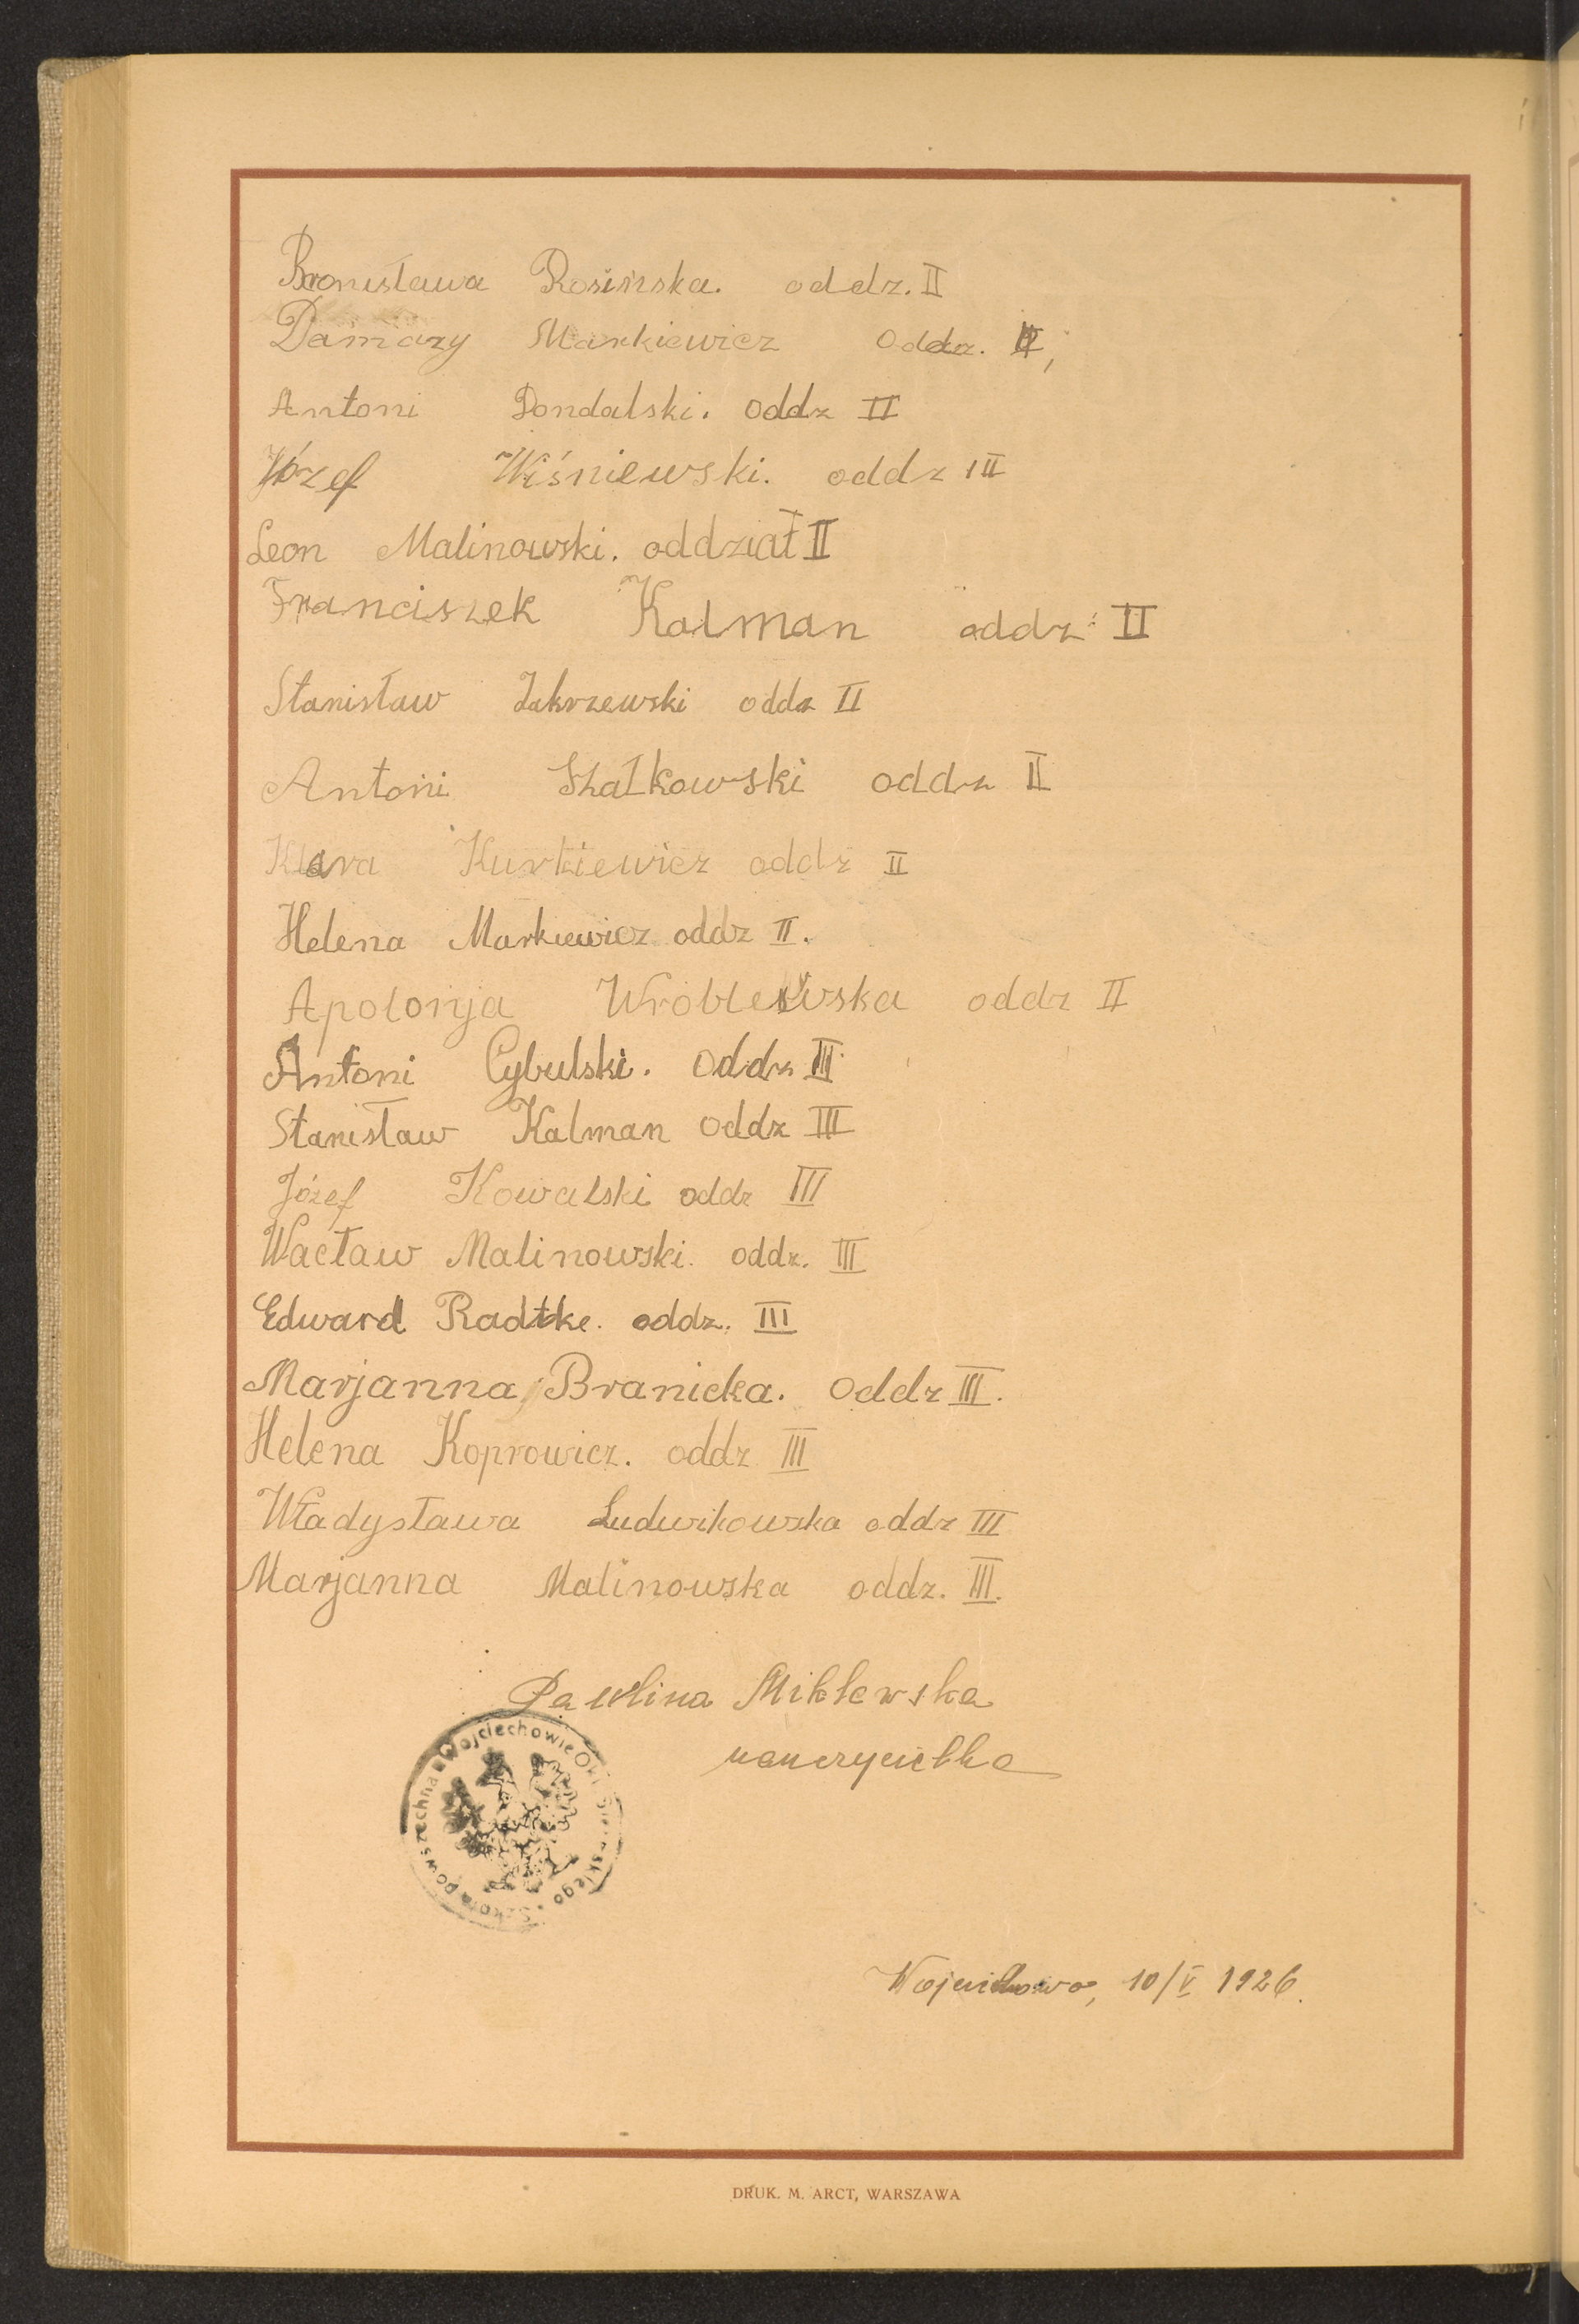 Bronisława Rosińska. oddz. II
Damazy Markiewicz Oddz. II,
Antoni Dondalski. oddz II
Józef Wiśniewski. oddz III
Leon Malinowski. oddział II
Franciszek Kalman oddz: II
Stanisław Zakrzewski oddz II
Antoni Szałkowski oddz II
Klara Kurkiewicz oddz II
Helena Markiewicz oddz II.
Apolonja Wróblewska oddz II
Antoni Cybulski. Oddz III
Stanisław Kalman oddz III
Józef Kowalski oddz III
Wacław Malinowski. oddz. III
Edward Radtke. oddz. III
Marjanna Branicka. Oddz III.
Helena Koprowicz. oddz III
Władysława Ludwikowska oddz III
Marjanna Malinowska oddz. III.
Pawlina Miklewska
nauczycielka
Szkoła powszechna w Wojciechowie
Wojciechowo, 10/V 1926.
DRUK. M. ARCT, WARSZAWA